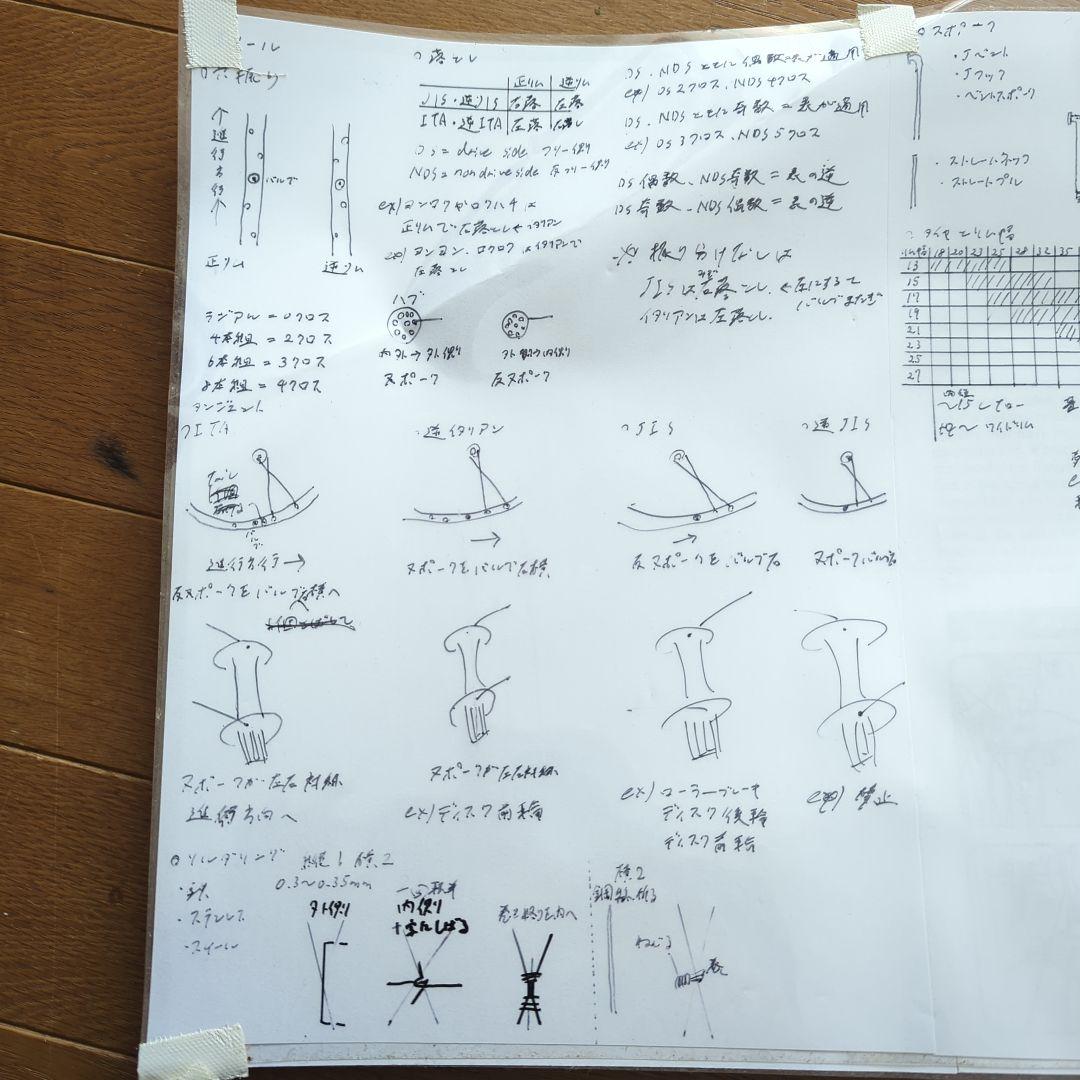 穴振り
↑進行方行↑
バルブ
正リム
逆リム
ラジアル = 0クロス
4本組 = 2クロス
6本組 = 3クロス
8本組 = 4クロス
タンジェント
○落とし
正リム 逆リム
JIS・逆JIS 右落 左落
ITA・逆ITA 左落
DS = drive side フリー側
NDS = non drive side 反フリー側
ex) ヨンロクかロクハチは
正リムで右落とし イタリアン
ex) ヨンヨン、ロクロク イタリアンで
左落とし
DS、NDSともに偶数 = 表が適用
ex) DS 2クロス、NDS 4クロス
DS、NDSともに奇数 = 表が適用
ex) DS 3クロス、NDS 5クロス
DS偶数、NDS奇数 = 表の逆
DS奇数、NDS偶数 = 表の逆
※ 振り分けなしは
JISは右落とし
バルブまたぎ
イタリアンは左落とし
ハブ
内ヌキ→外側
ヌポーク
反ヌポーク
○スポーク
・Jベンド
・Jフック
・ベントスポーク
・ストレートネック
・ストレートプル
タイヤとリム幅
リム幅 18 20 23 25 28 32 35
13
15
17
19
21
23
25
27
内径
〜15 レトロー
ワイドリム
○ITA
バルブ
進行方行 →
反ヌポークをバルブ右横へ
○逆イタリアン
ヌポークをバルブ右横
○JIS
反ヌポークをバルブ右
○逆JIS
ヌポークバルブ右
ヌポークが左右対称
進行方向へ
ヌポークが左右対称
ex) ディスク前輪
ex) ローラーブレーキ
ディスク後輪
ディスク前輪
禁止
○ソルダリング
縦1 横2
・鉄
・ステンレス
・スイール
0.3〜0.35mm
外側
内側
十字にしばる
巻き終り内へ
横2
ねじる